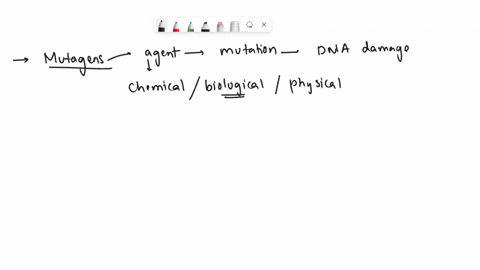 → Mutagens — agent → mutation — DNA damage
↓
chemical / biological / physical